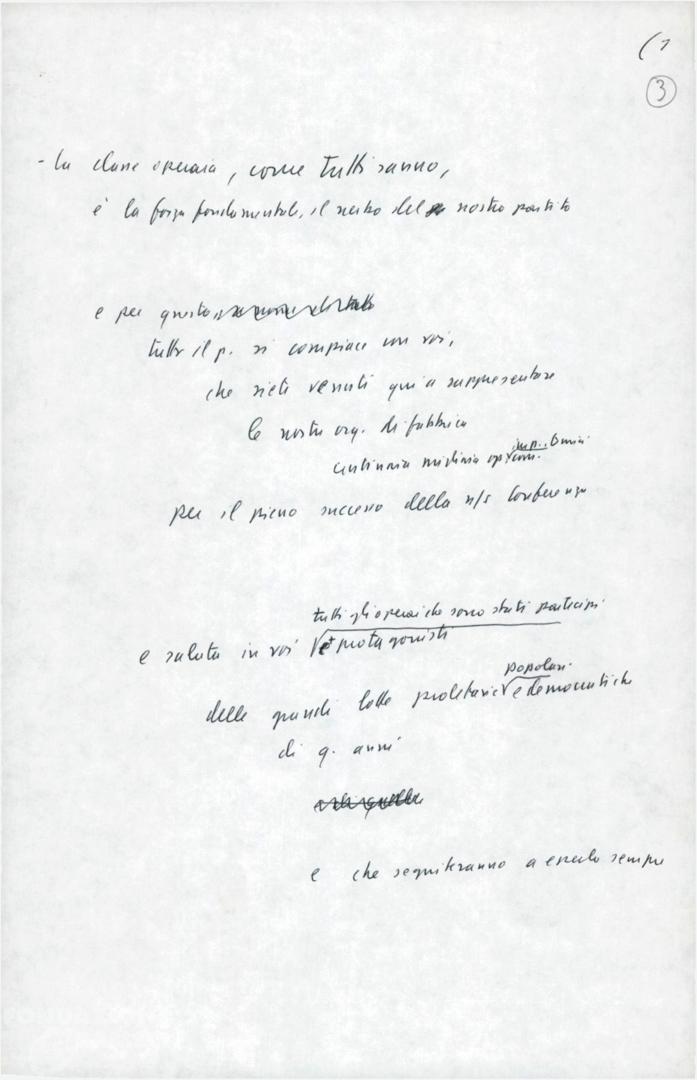 (1
3
- la classe operaia, come tutti sanno,
è la forza fondamentale, il nerbo del nostro partito
e per questo
tutto il p. si compiace con voi,
che siete venuti qui a rappresentare
le nostre org. di fabbrica
centinaia migliaia op.
per il pieno successo della n/s Conferenza
tutti gli operai che sono stati partecipi
e saluta in voi e protagonisti
popolari
delle grandi lotte proletarie e democratiche
di q. anni
e che seguiteranno a esserlo sempre